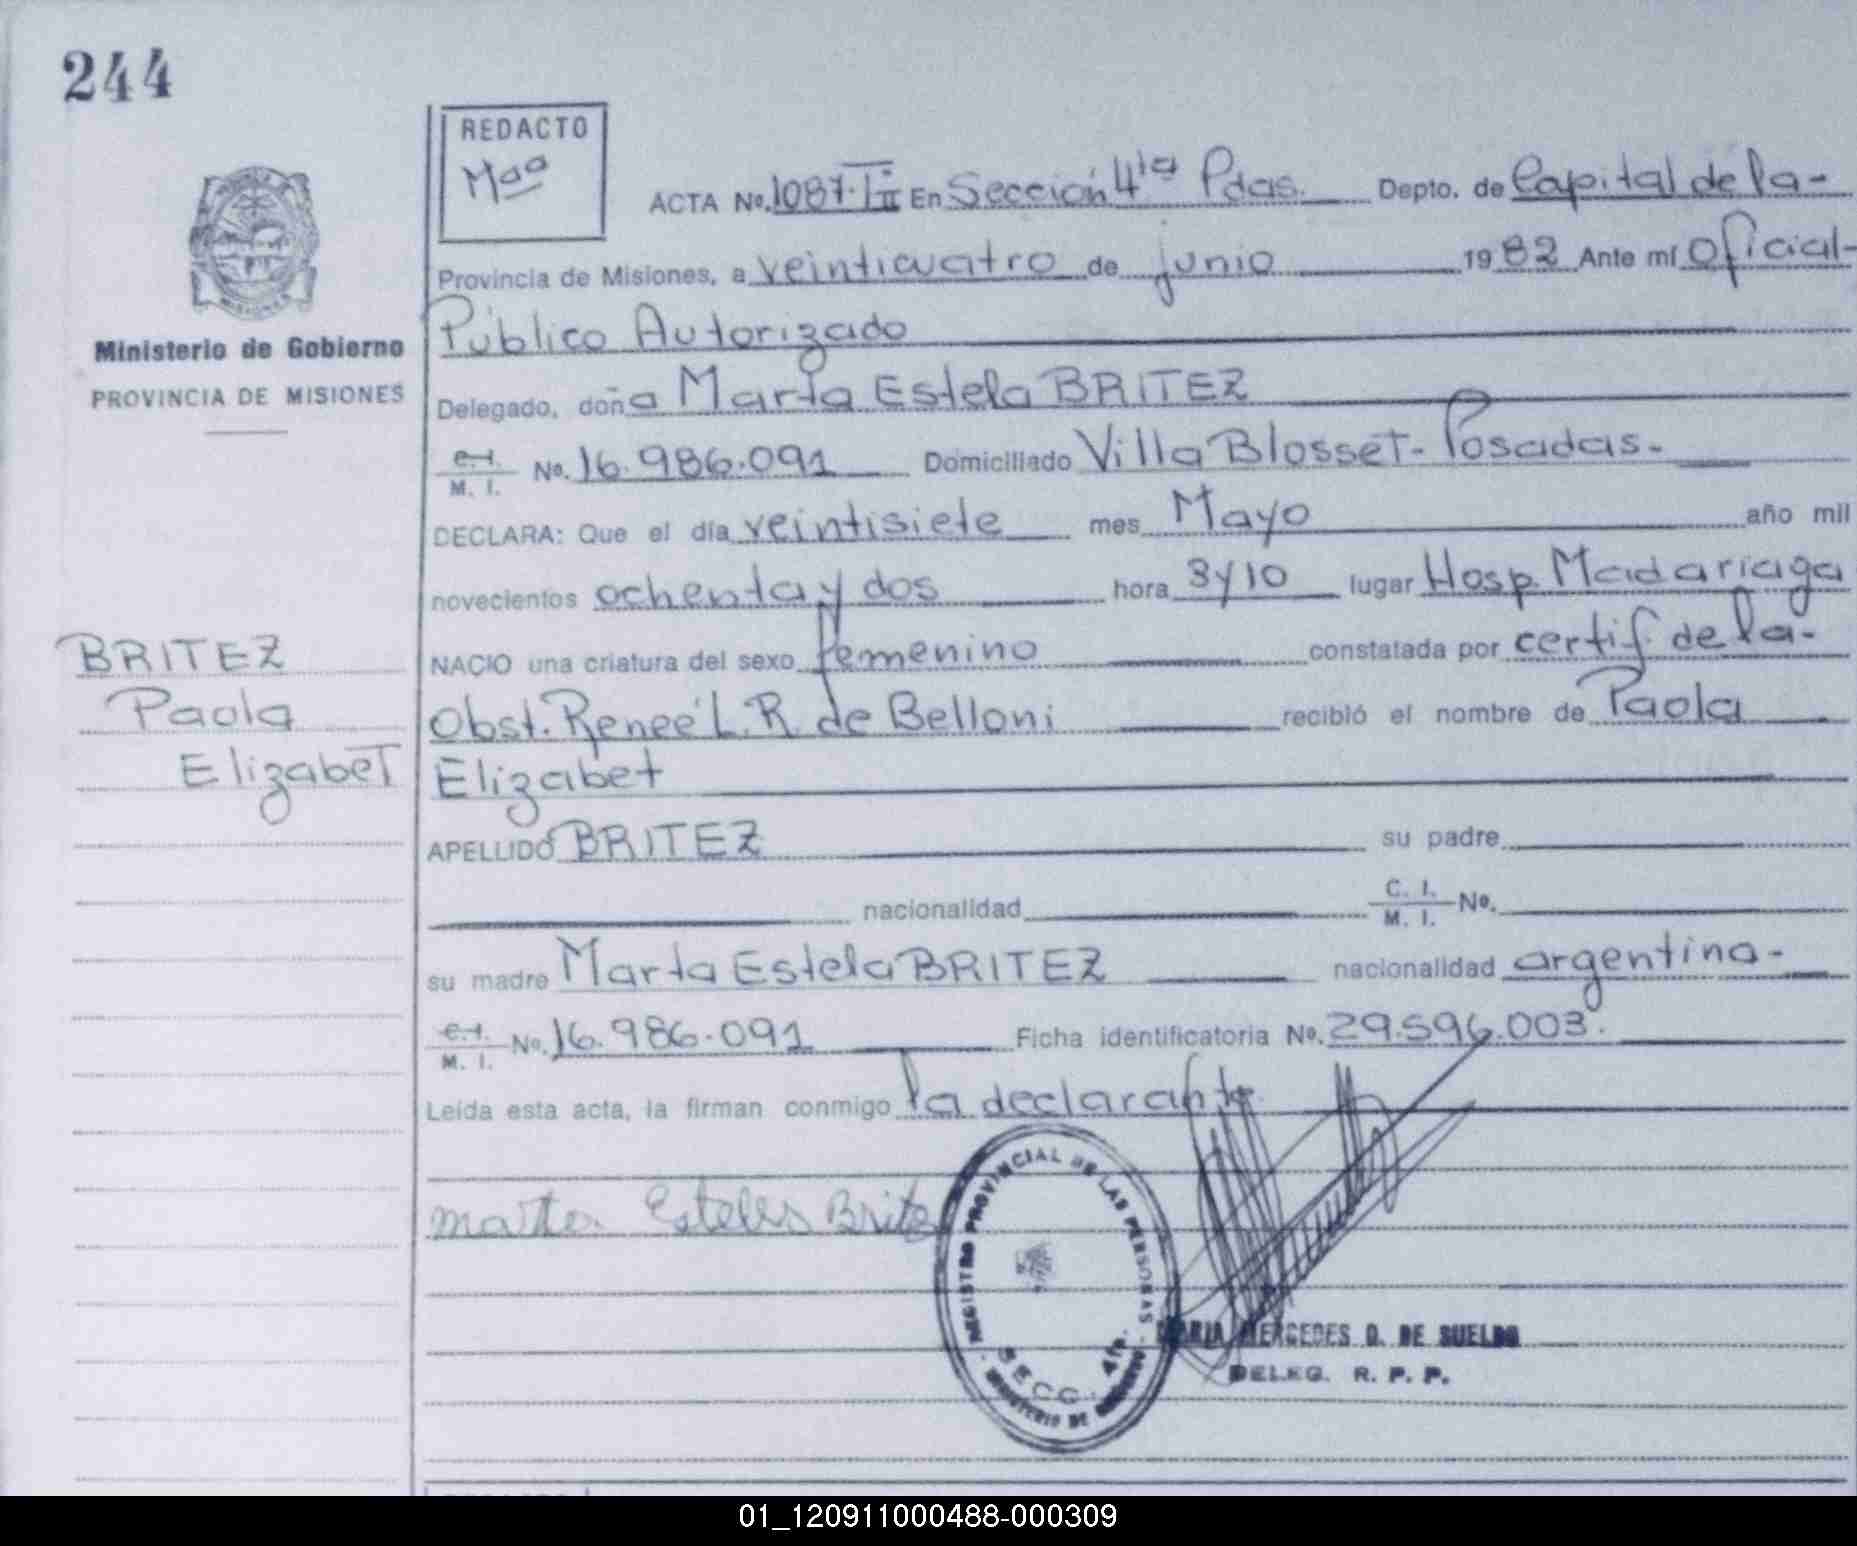 244
REDACTO
Maa
ACTA No. 1087-T II En Sección 4ta Pdas. Depto. de Capital de la-
Provincia de Misiones, a veinticuatro de junio 1982 Ante mí Oficial-
Público Autorizado
Delegado, doña Marta Estela BRITEZ
C. I. / M. I. No. 16.986.091 Domiciliado Villa Blosset- Posadas-
DECLARA: Que el día veintisiete mes Mayo año mil
novecientos ochenta y dos hora 3y10 lugar Hosp. Madariaga
NACIO una criatura del sexo femenino constatada por certif. de la-
Obst. Reneé L. R. de Belloni recibió el nombre de Paola
Elizabet
APELLIDO BRITEZ su padre
nacionalidad C. I. / M. I. No.
su madre Marta Estela BRITEZ nacionalidad argentina-
C. I. / M. I. No. 16.986.091 Ficha identificatoria No. 29.596.003.
Leída esta acta, la firman conmigo la declarante
Marta Estela Britez
MISIONES
Ministerio de Gobierno
PROVINCIA DE MISIONES
BRITEZ
Paola
Elizabet
REGISTRO PROVINCIAL DE LAS PERSONAS
SECC. 4ta.
MINISTERIO DE GOBIERNO
MARIA MERCEDES D. DE SUELDO
DELEG. R. P. P.
01_120911000488-000309